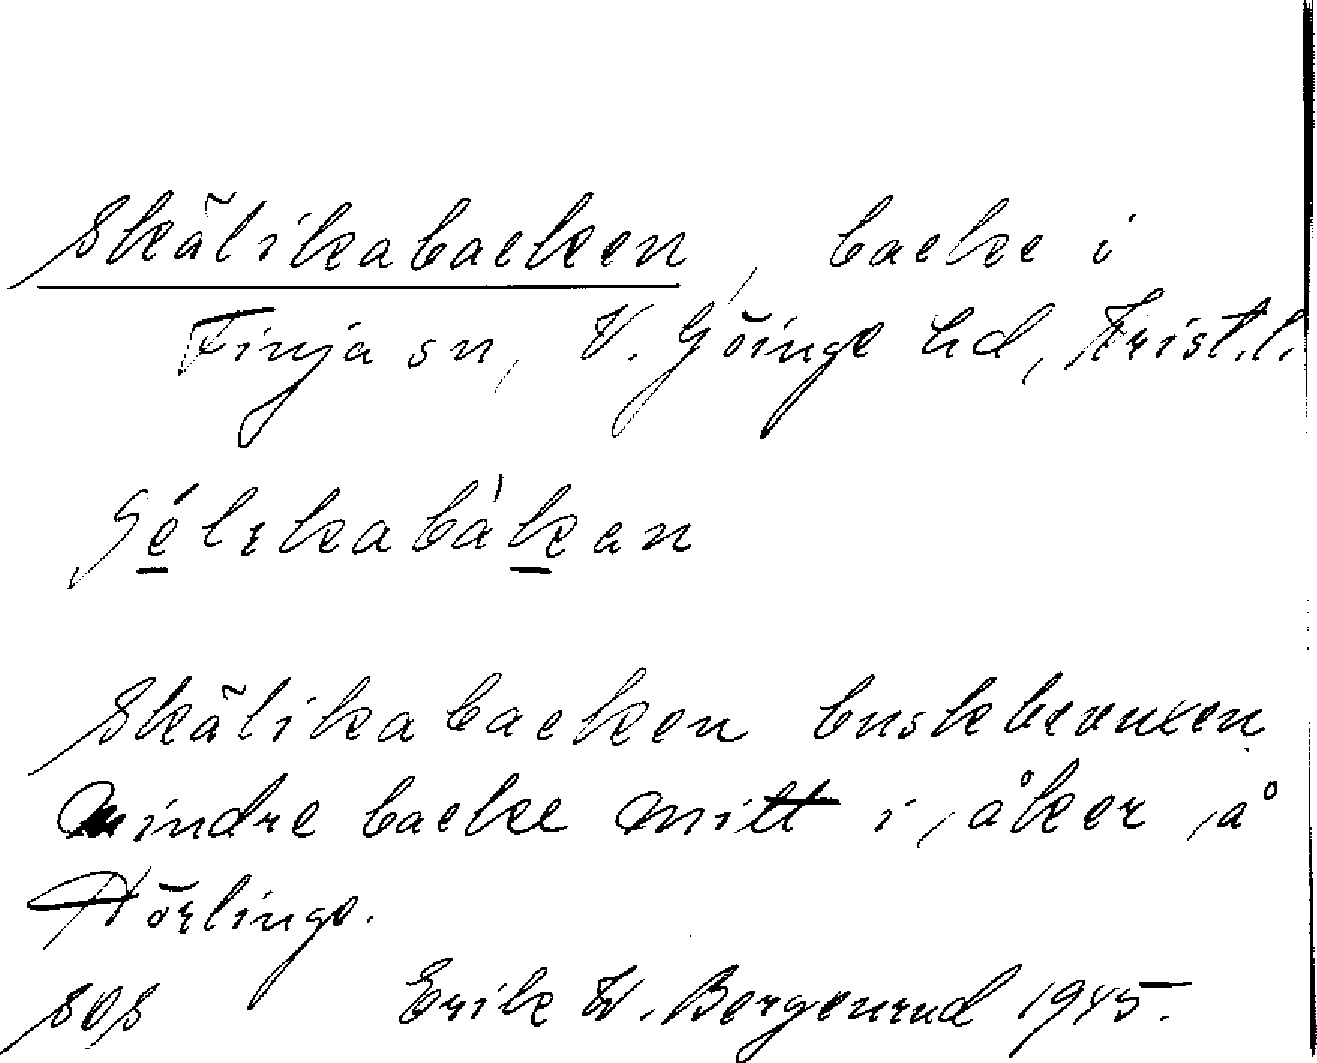 Skälikabacken, backe i
Finja sn, V. Göinge hd, Krist.l.
Skälikabacken buskbevuxen
mindre backe mitt i åker å
Hörlinge.
Erik W. Bergenrud 1945.